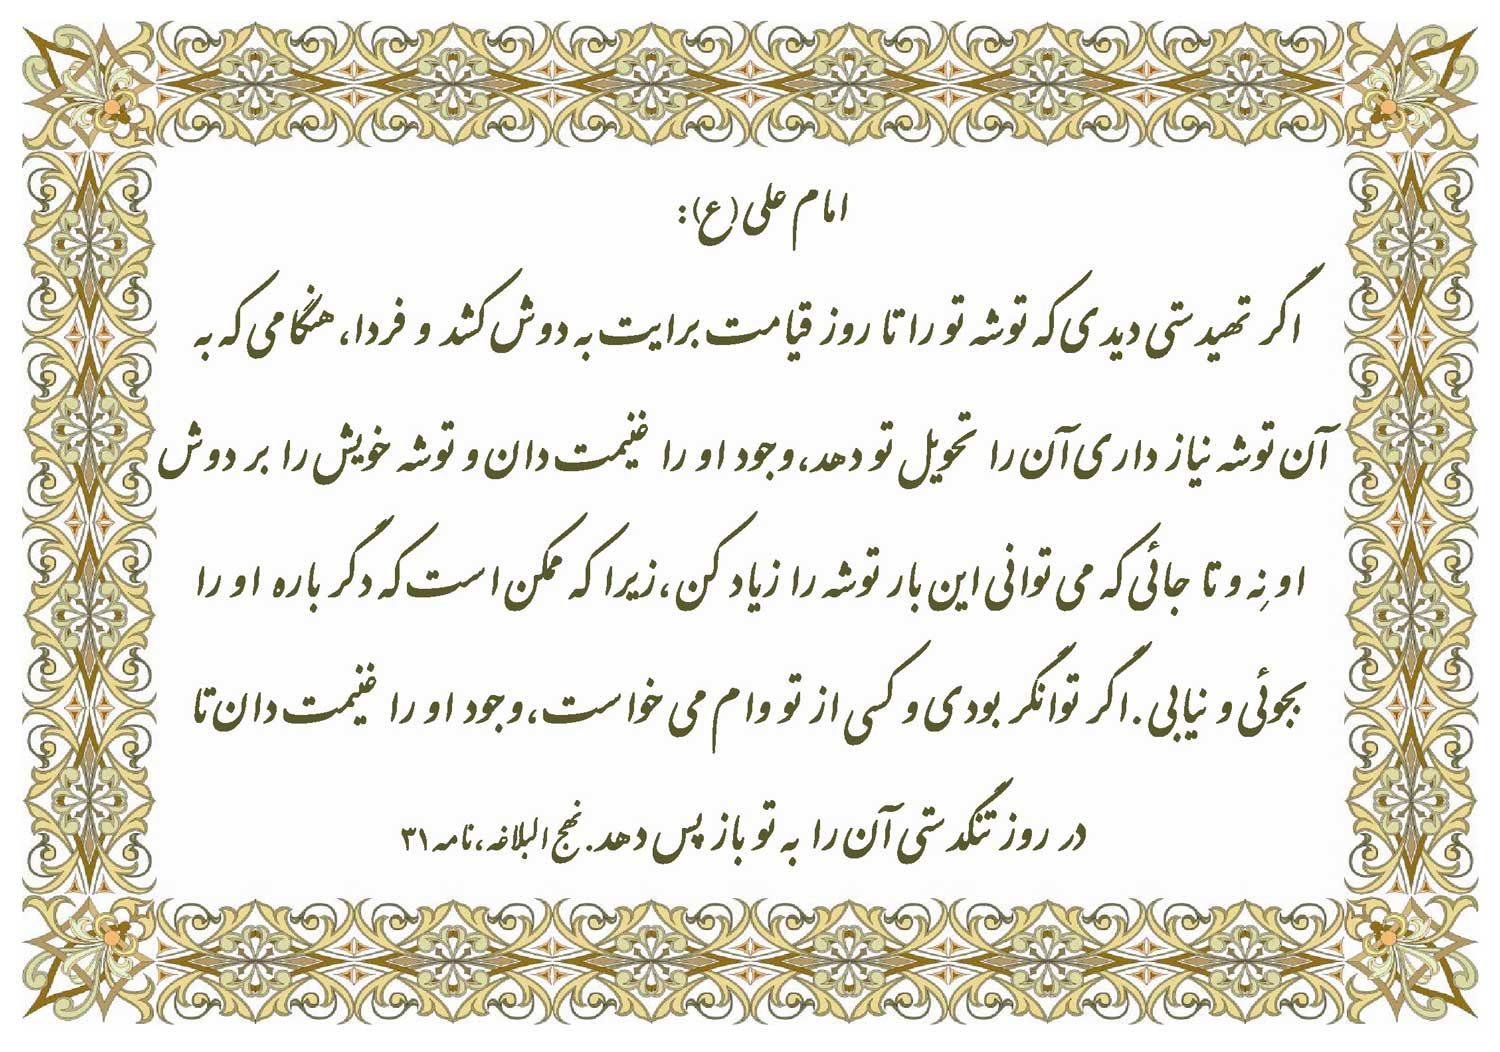 امام علی(ع):
اگر تهیدستی دیدی که توشه تو را تا روز قیامت برایت به دوش کشد و فردا، هنگامی که به
آن توشه نیاز داری آن را تحویل تو دهد، وجود او را غنیمت دان و توشه خویش را بر دوش
او نِه و تا جائی که می توانی این بار توشه را زیاد کن، زیرا که ممکن است که دگر باره او را
بجوئی و نیابی. اگر توانگر بودی و کسی از تو وام می خواست، وجود او را غنیمت دان تا
در روز تنگدستی آن را به تو باز پس دهد. نهج البلاغه، نامه ۳۱